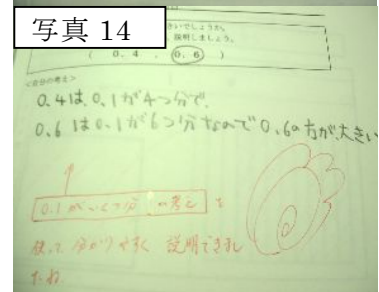 写真 14
きいでしょうか。
説明しましょう。
( 0.4 , 0.6 )
<自分の考え>
0.4は、0.1が4つ分で、
0.6は0.1が6つ分なので0.6の方が大きい
0.1がいくつ分 の考え を
使って 分かりやすく 説明できまし
たね